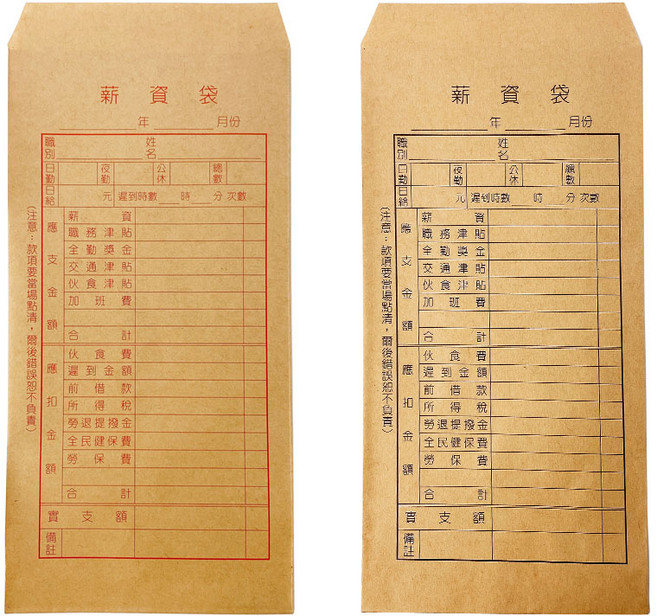 薪資袋
年 月份
職別 姓名
日勤 夜勤 公休 總數
日給 元 遲到時數 時 分 次數
應支金額
薪資
職務津貼
全勤獎金
交通津貼
伙食津貼
加班費
合計
應扣金額
伙食費
遲到金額
前借款
所得稅
勞退提撥金
全民健保費
勞保費
合計
實支額
備註
(注意:款項要當場點清,爾後錯誤恕不負責)
薪資袋
年 月份
職別 姓名
日勤 夜勤 公休 總數
日給 元 遲到時數 時 分 次數
應支金額
薪資
職務津貼
全勤獎金
交通津貼
伙食津貼
加班費
合計
應扣金額
伙食費
遲到金額
前借款
所得稅
勞退提撥金
全民健保費
勞保費
合計
實支額
備註
(注意:款項要當場點清,爾後錯誤恕不負責)